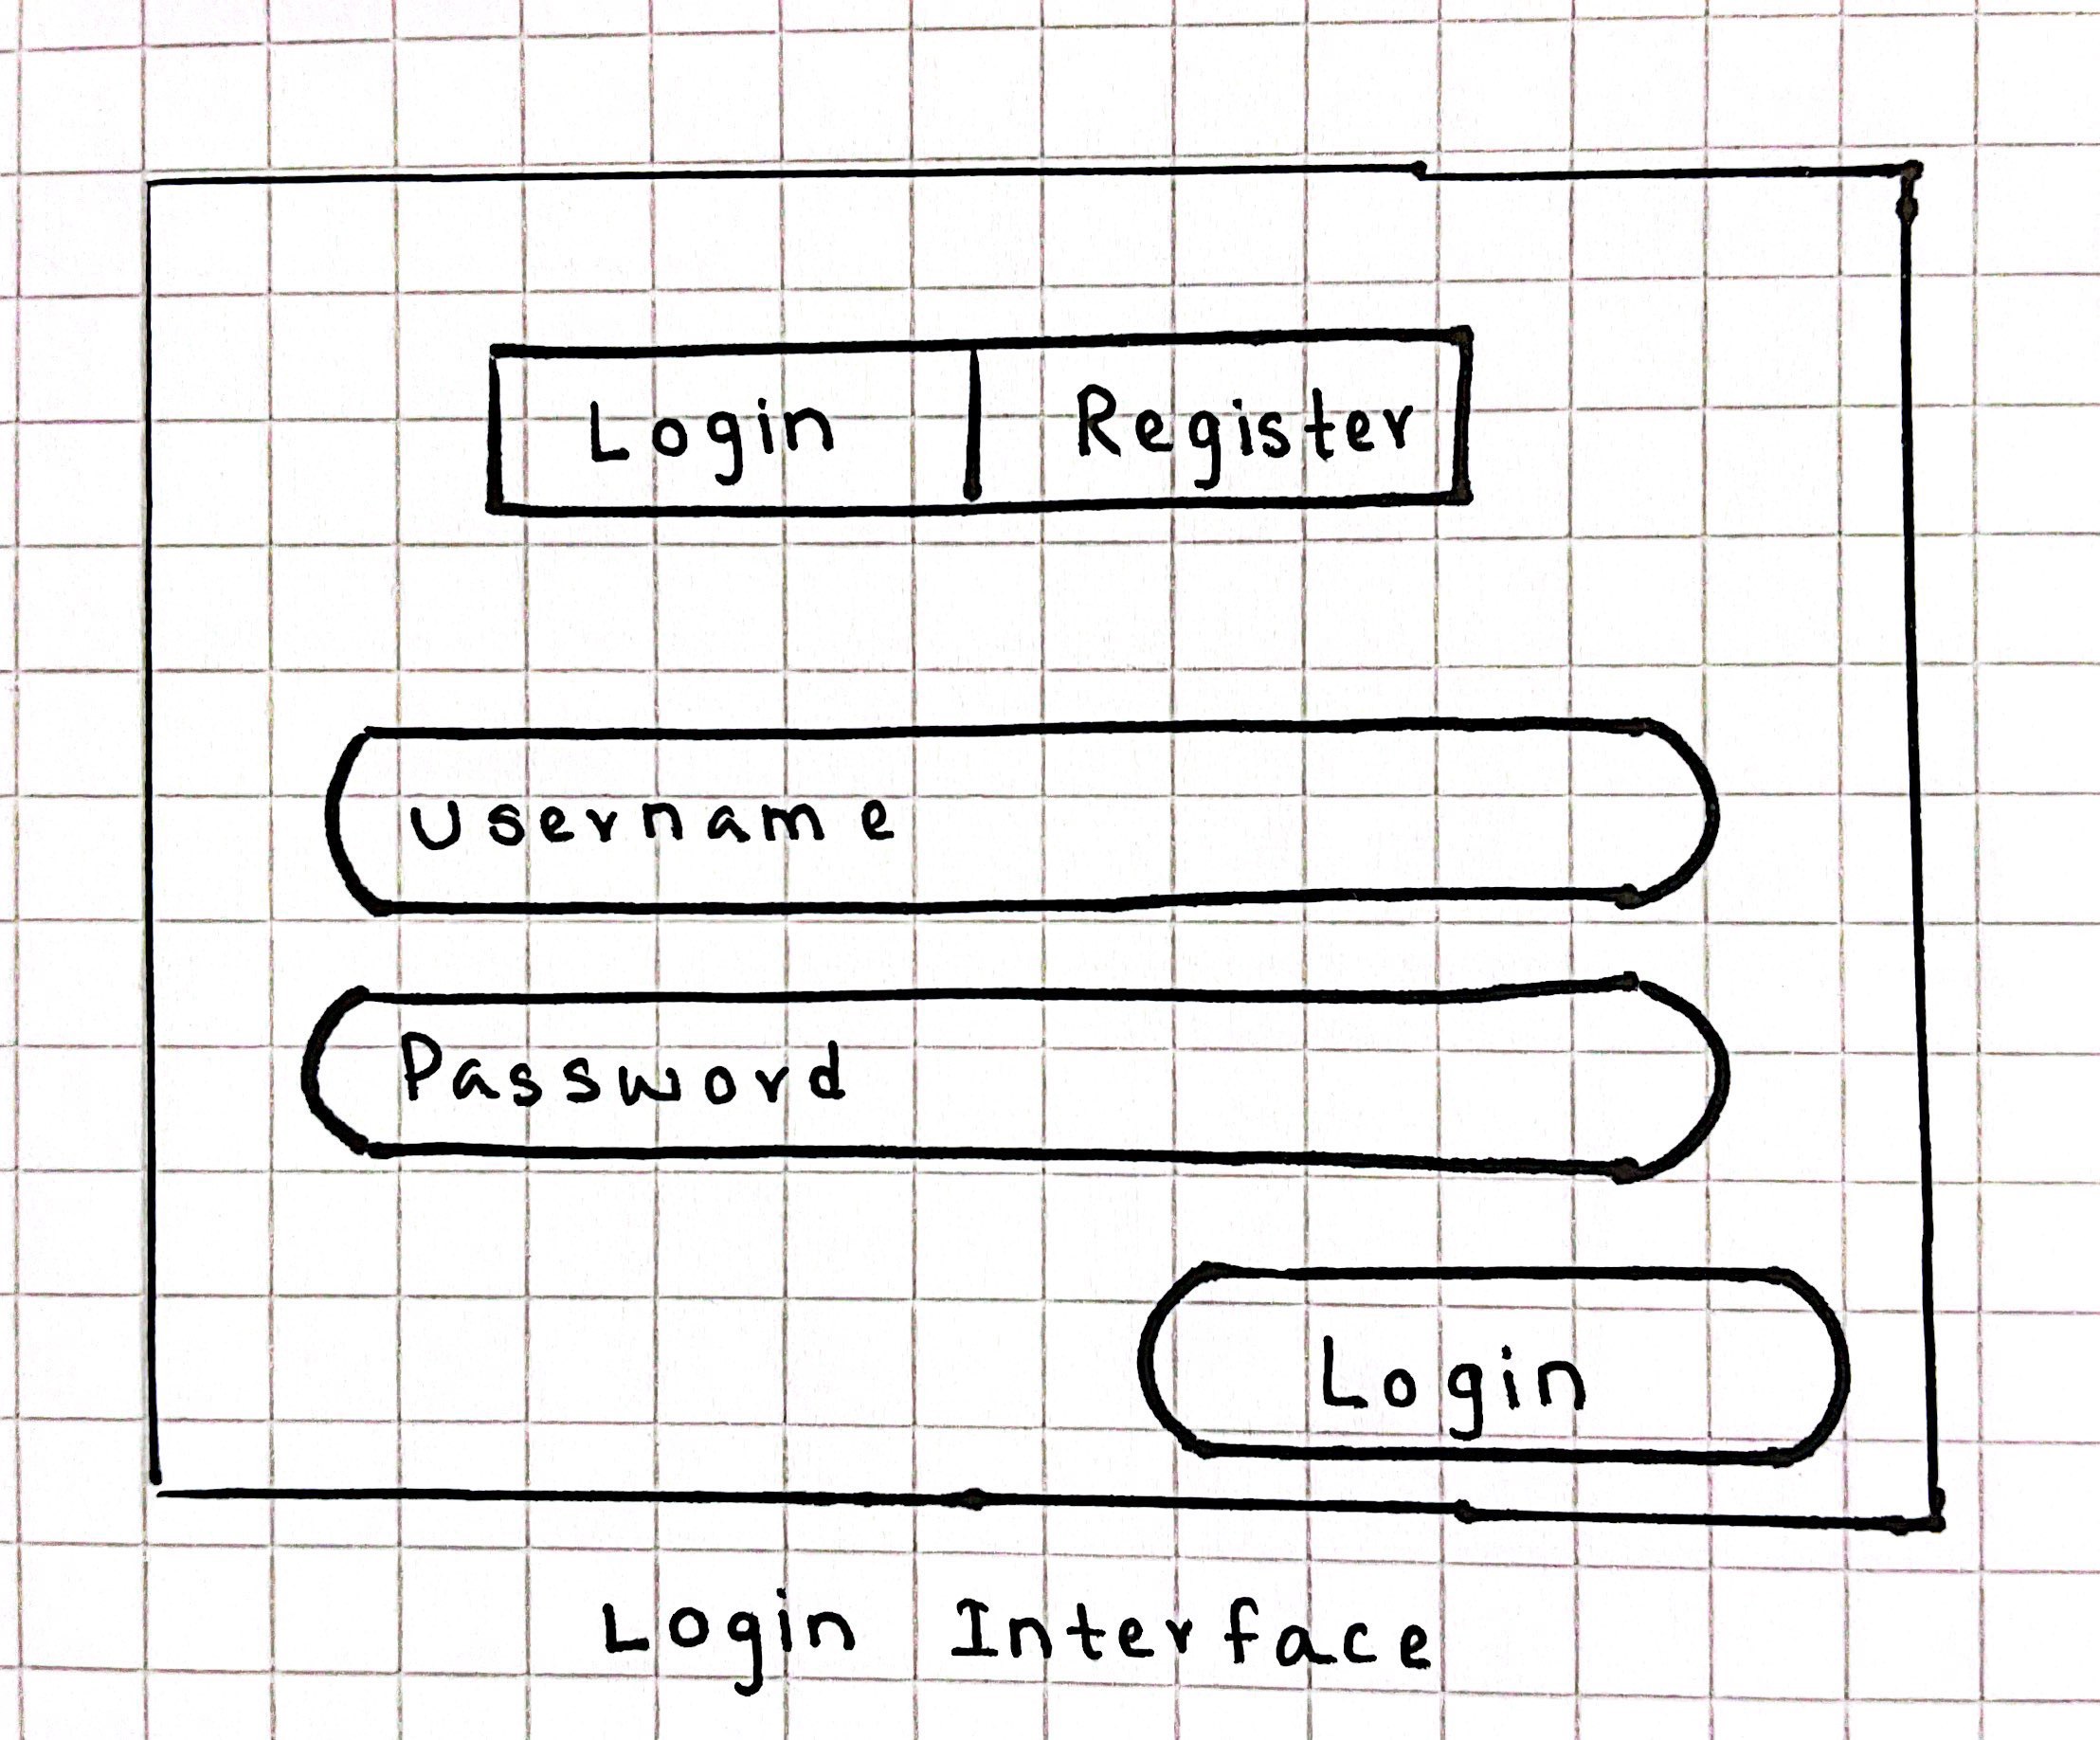 Login Register
Username
Password
Login
Login Interface